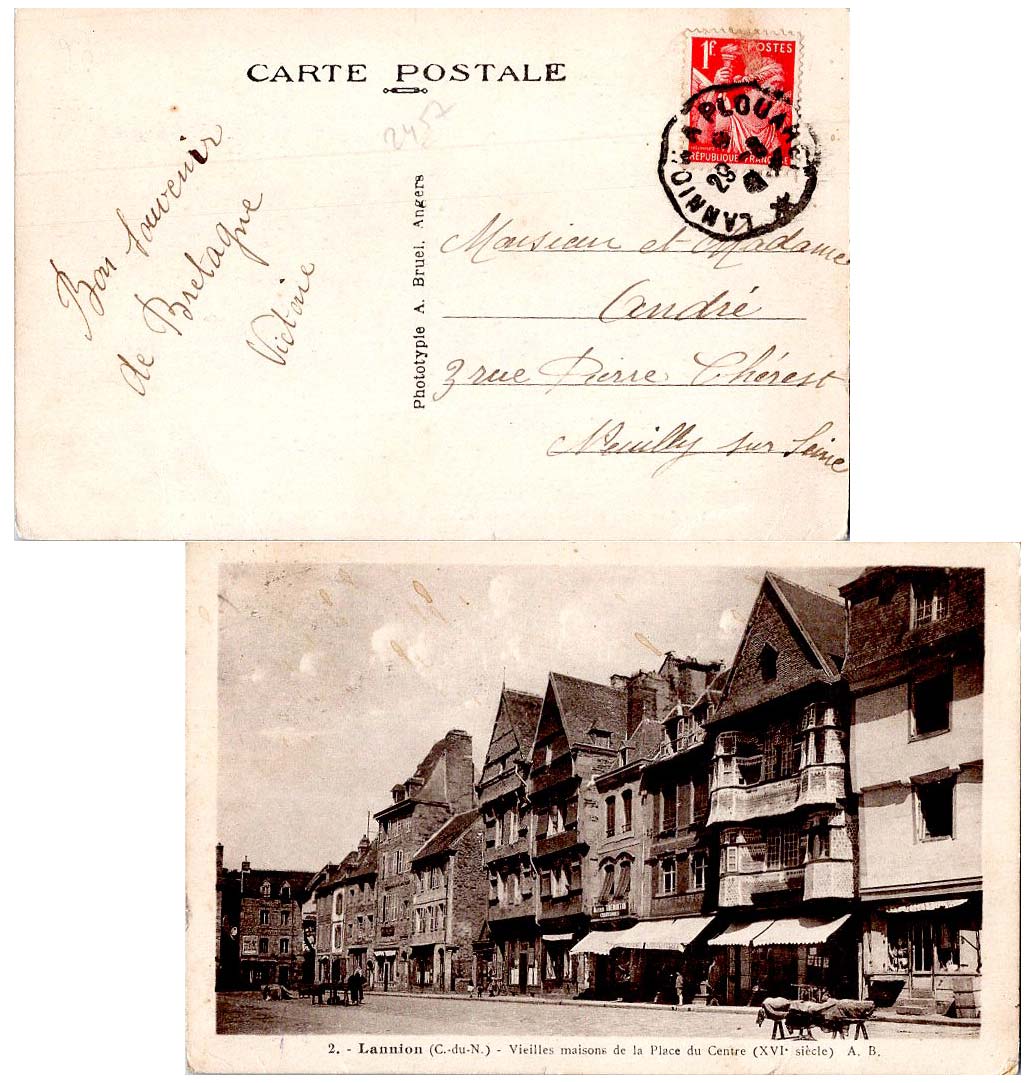 CARTE POSTALE
2457
1f. POSTES
RÉPUBLIQUE FRANÇAISE
LANNION A PLOUARET
29
Bon souvenir
de Bretagne
Victoire
Phototypie A. Bruel, Angers
Monsieur et Madame
André
3 rue Pierre Chérest
Neuilly sur Seine
2. - Lannion (C.-du-N.) - Vieilles maisons de la Place du Centre (XVIe siècle) A. B.